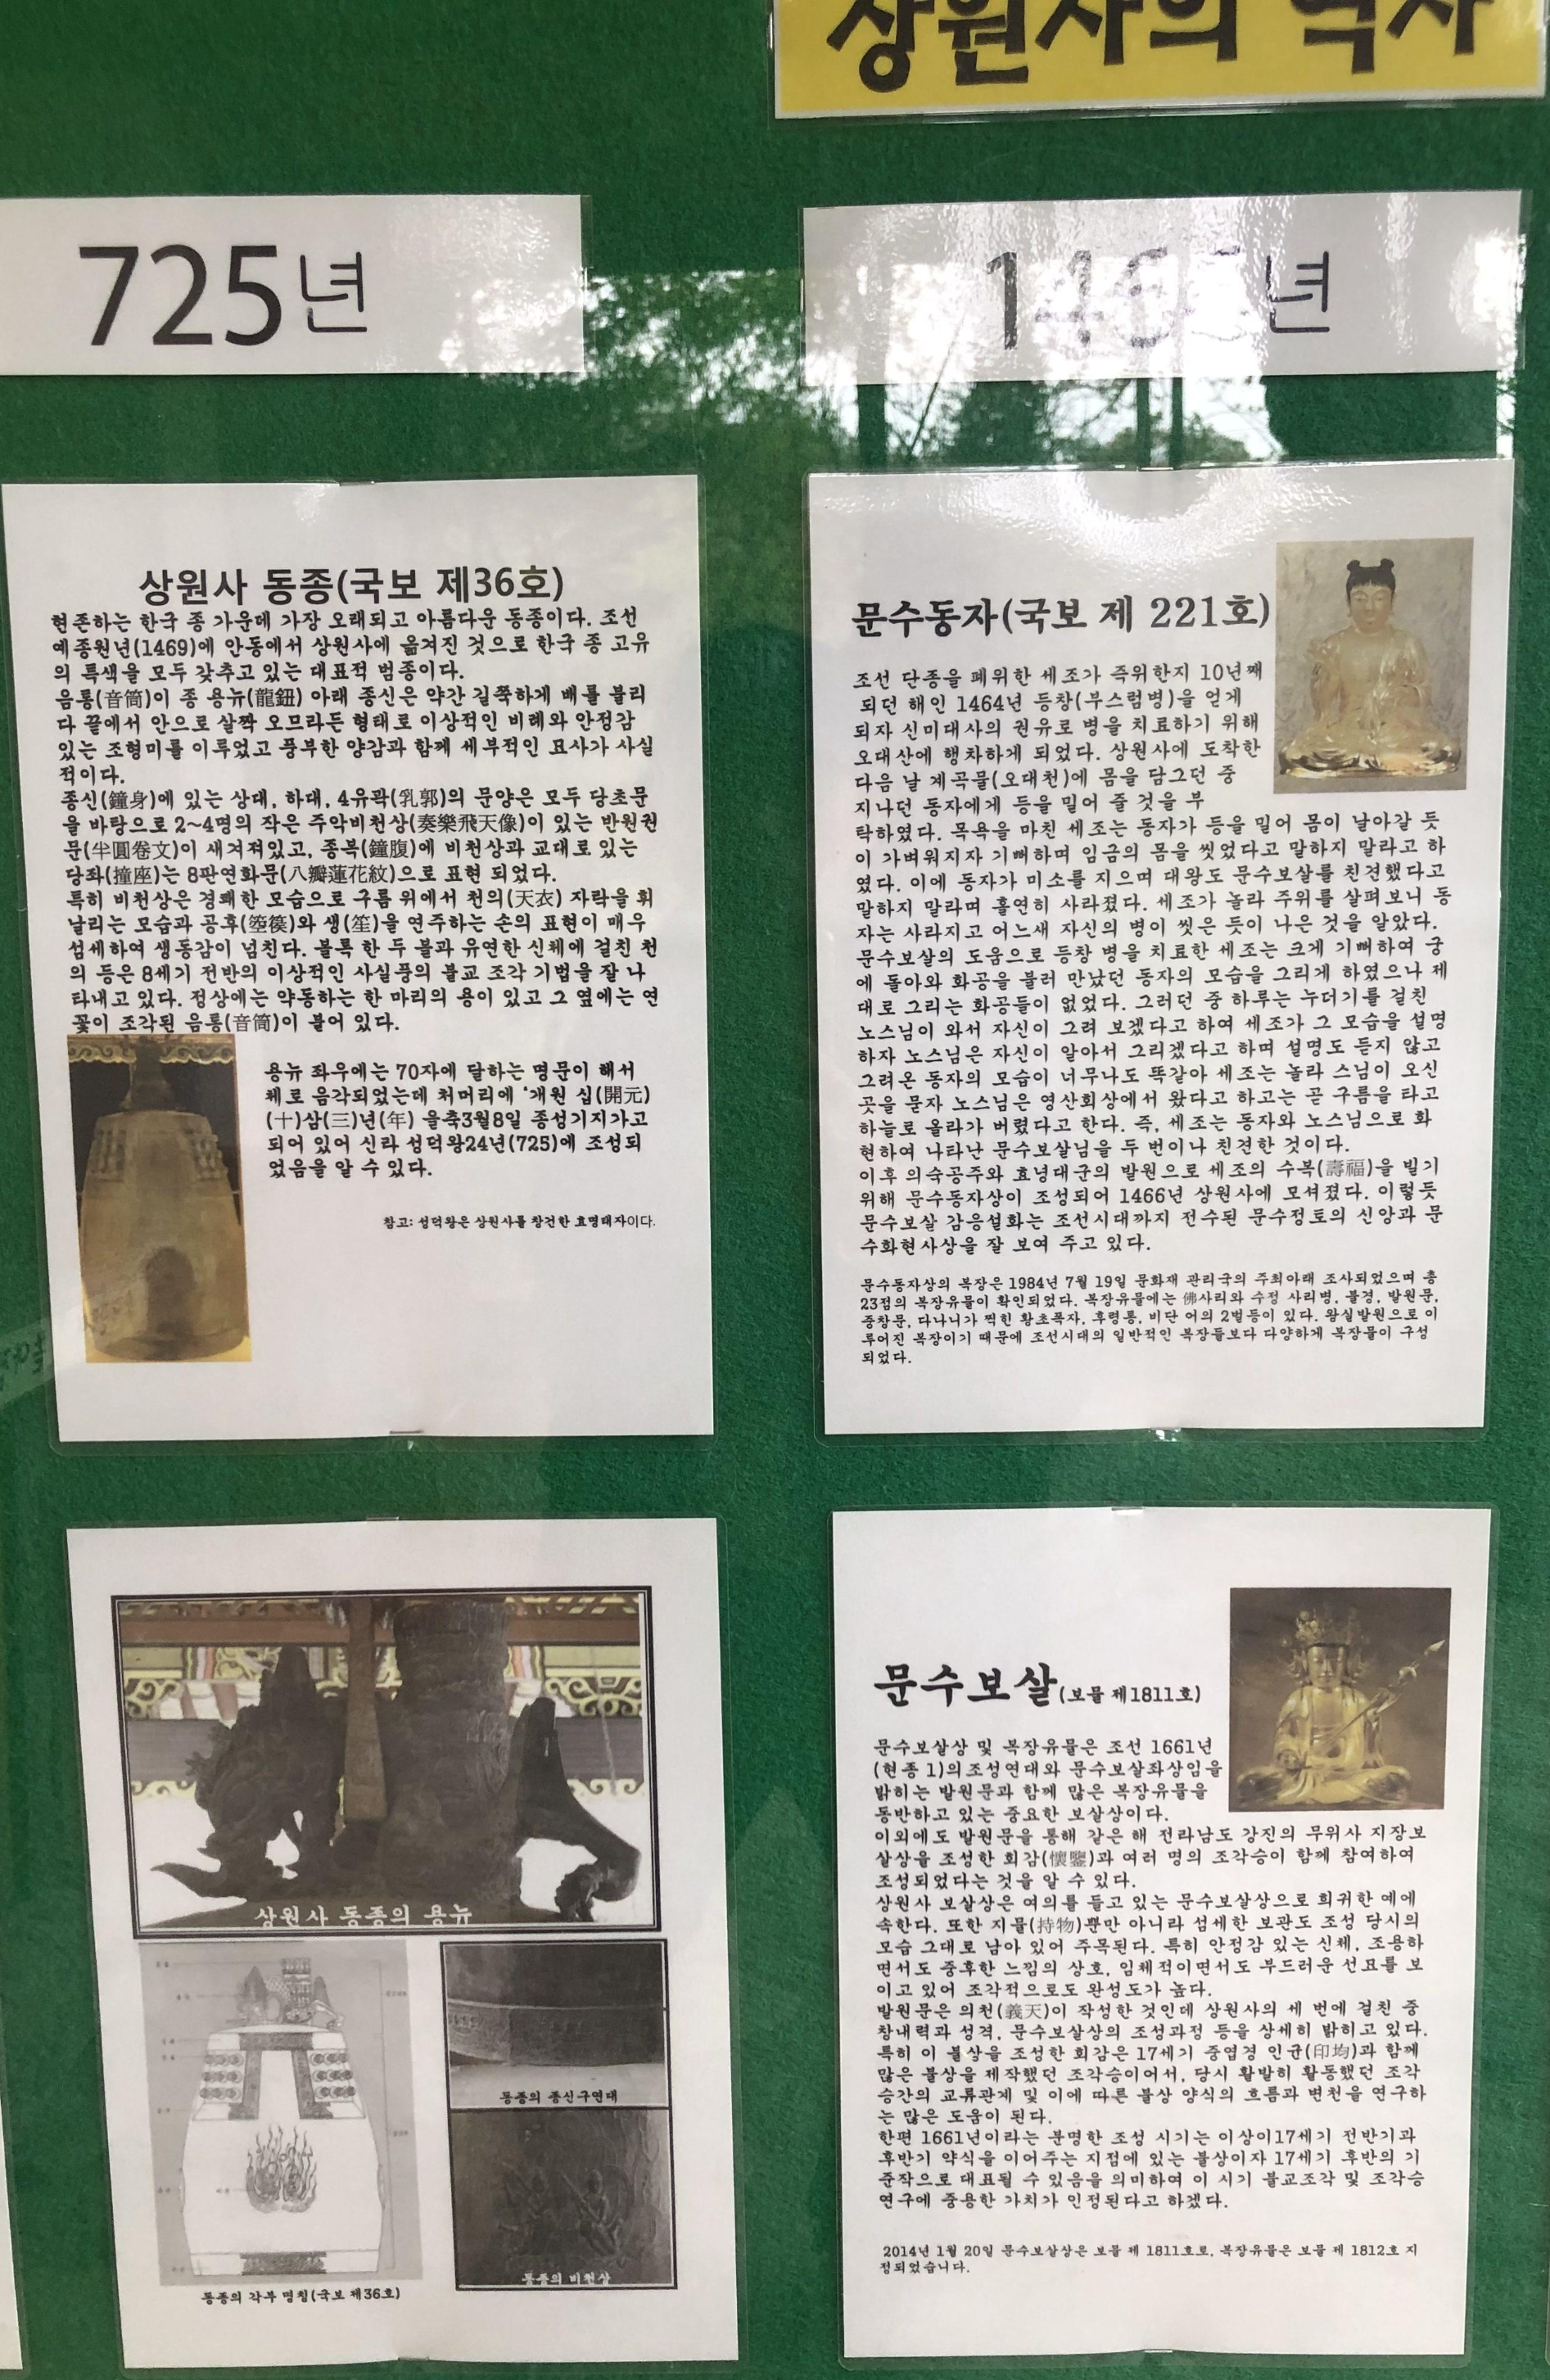 상원사의 역사
725년
상원사 동종(국보 제36호)
현존하는 한국 종 가운데 가장 오래되고 아름다운 동종이다. 조선
예종원년(1469)에 안동에서 상원사에 옮겨진 것으로 한국 종 고유
의 특색을 모두 갖추고 있는 대표적 범종이다.
음통(音筒)이 종 용뉴(龍鈕) 아래 종신은 약간 길쭉하게 배를 불리
다 끝에서 안으로 살짝 오므라든 형태로 이상적인 비례와 안정감
있는 조형미를 이루었고 풍부한 양감과 함께 세부적인 묘사가 사실
적이다.
종신(鐘身)에 있는 상대, 하대, 4유곽(乳郭)의 문양은 모두 당초문
을 바탕으로 2~4명의 작은 주악비천상(奏樂飛天像)이 있는 반원권
문(半圓卷文)이 새겨져있고, 종복(鐘腹)에 비천상과 교대로 있는
당좌(撞座)는 8판연화문(八瓣蓮花紋)으로 표현 되었다.
특히 비천상은 경쾌한 모습으로 구름 위에서 천의(天衣) 자락을 휘
날리는 모습과 공후(箜篌)와 생(笙)을 연주하는 손의 표현이 매우
섬세하여 생동감이 넘친다. 볼록 한 두 볼과 유연한 신체에 걸친 천
의 등은 8세기 전반의 이상적인 사실풍의 불교 조각 기법을 잘 나
타내고 있다. 정상에는 약동하는 한 마리의 용이 있고 그 옆에는 연
꽃이 조각된 음통(音筒)이 붙어 있다.
용뉴 좌우에는 70자에 달하는 명문이 해서
체로 음각되었는데 첫머리에 '개원 십(開元)
(十)삼(三)년(年) 을축3월8일 종성기지가고
되어 있어 신라 성덕왕24년(725)에 조성되
었음을 알 수 있다.
참고: 성덕왕은 상원사를 창건한 효명태자이다.
상원사 동종의 용뉴
동종의 종신구연대
동종의 비천상
동종의 각부 명칭(국보 제36호)
년
문수동자(국보 제 221호)
조선 단종을 폐위한 세조가 즉위한지 10년째
되던 해인 1464년 등창(부스럼병)을 얻게
되자 신미대사의 권유로 병을 치료하기 위해
오대산에 행차하게 되었다. 상원사에 도착한
다음 날 계곡물(오대천)에 몸을 담그던 중
지나던 동자에게 등을 밀어 줄 것을 부
탁하였다. 목욕을 마친 세조는 동자가 등을 밀어 몸이 날아갈 듯
이 가벼워지자 기뻐하며 임금의 몸을 씻었다고 말하지 말라고 하
였다. 이에 동자가 미소를 지으며 대왕도 문수보살를 친견했다고
말하지 말라며 홀연히 사라졌다. 세조가 놀라 주위를 살펴보니 동
자는 사라지고 어느새 자신의 병이 씻은 듯이 나은 것을 알았다.
문수보살의 도움으로 등창 병을 치료한 세조는 크게 기뻐하여 궁
에 돌아와 화공을 불러 만났던 동자의 모습을 그리게 하였으나 제
대로 그리는 화공들이 없었다. 그러던 중 하루는 누더기를 걸친
노스님이 와서 자신이 그려 보겠다고 하여 세조가 그 모습을 설명
하자 노스님은 자신이 알아서 그리겠다고 하며 설명도 듣지 않고
그려온 동자의 모습이 너무나도 똑같아 세조는 놀라 스님이 오신
곳을 묻자 노스님은 영산회상에서 왔다고 하고는 곧 구름을 타고
하늘로 올라가 버렸다고 한다. 즉, 세조는 동자와 노스님으로 화
현하여 나타난 문수보살님을 두 번이나 친견한 것이다.
이후 의숙공주와 효녕대군의 발원으로 세조의 수복(壽福)을 빌기
위해 문수동자상이 조성되어 1466년 상원사에 모셔졌다. 이렇듯
문수보살 감응설화는 조선시대까지 전수된 문수정토의 신앙과 문
수화현사상을 잘 보여 주고 있다.
문수동자상의 복장은 1984년 7월 19일 문화재 관리국의 주최아래 조사되었으며 총
23점의 복장유물이 확인되었다. 복장유물에는 佛사리와 수정 사리병, 불경, 발원문,
중창문, 다나니가 찍힌 황초폭자, 후령통, 비단 어의 2벌등이 있다. 왕실발원으로 이
루어진 복장이기 때문에 조선시대의 일반적인 복장들보다 다양하게 복장물이 구성
되었다.
문수보살(보물 제1811호)
문수보살상 및 복장유물은 조선 1661년
(현종 1)의조성연대와 문수보살좌상임을
밝히는 발원문과 함께 많은 복장유물을
동반하고 있는 중요한 보살상이다.
이외에도 발원문을 통해 같은 해 전라남도 강진의 무위사 지장보
살상을 조성한 회감(懷鑒)과 여러 명의 조각승이 함께 참여하여
조성되었다는 것을 알 수 있다.
상원사 보살상은 여의를 들고 있는 문수보살상으로 희귀한 예에
속한다. 또한 지물(持物)뿐만 아니라 섬세한 보관도 조성 당시의
모습 그대로 남아 있어 주목된다. 특히 안정감 있는 신체, 조용하
면서도 중후한 느낌의 상호, 입체적이면서도 부드러운 선묘를 보
이고 있어 조각적으로도 완성도가 높다.
발원문은 의천(義天)이 작성한 것인데 상원사의 세 번에 걸친 중
창내력과 성격, 문수보살상의 조성과정 등을 상세히 밝히고 있다.
특히 이 불상을 조성한 회감은 17세기 중엽경 인균(印均)과 함께
많은 불상을 제작했던 조각승이어서, 당시 활발히 활동했던 조각
승간의 교류관계 및 이에 따른 불상 양식의 흐름과 변천을 연구하
는 많은 도움이 된다.
한편 1661년이라는 분명한 조성 시기는 이상이17세기 전반기과
후반기 약식을 이어주는 지점에 있는 불상이자 17세기 후반의 기
준작으로 대표될 수 있음을 의미하여 이 시기 불교조각 및 조각승
연구에 중용한 가치가 인정된다고 하겠다.
2014년 1월 20일 문수보살상은 보물 제 1811호로, 복장유물은 보물 제 1812호 지
정되었습니다.